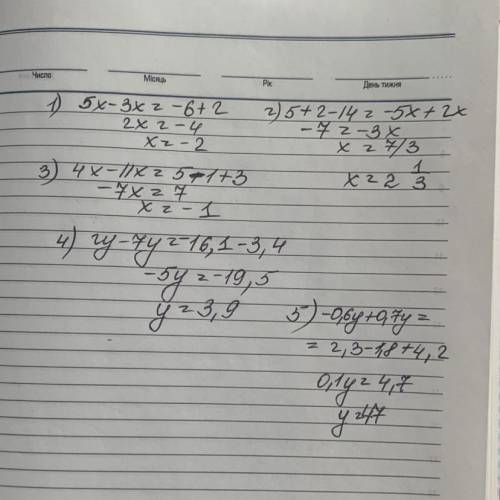 Число Місяць Рік День тижня
1) 5x-3x=-6+2
2x=-4
x=-2
2) 5+2-14=-5x+2x
-7=-3x
x=7/3
x=2 1/3
3) 4x-11x=5-1+3
-7x=7
x=-1
4) 2y-7y=-16,1-3,4
-5y=-19,5
y=3,9
5) -0,6y+0,7y=
=2,3-1,8+4,2
0,1y=4,7
y=47